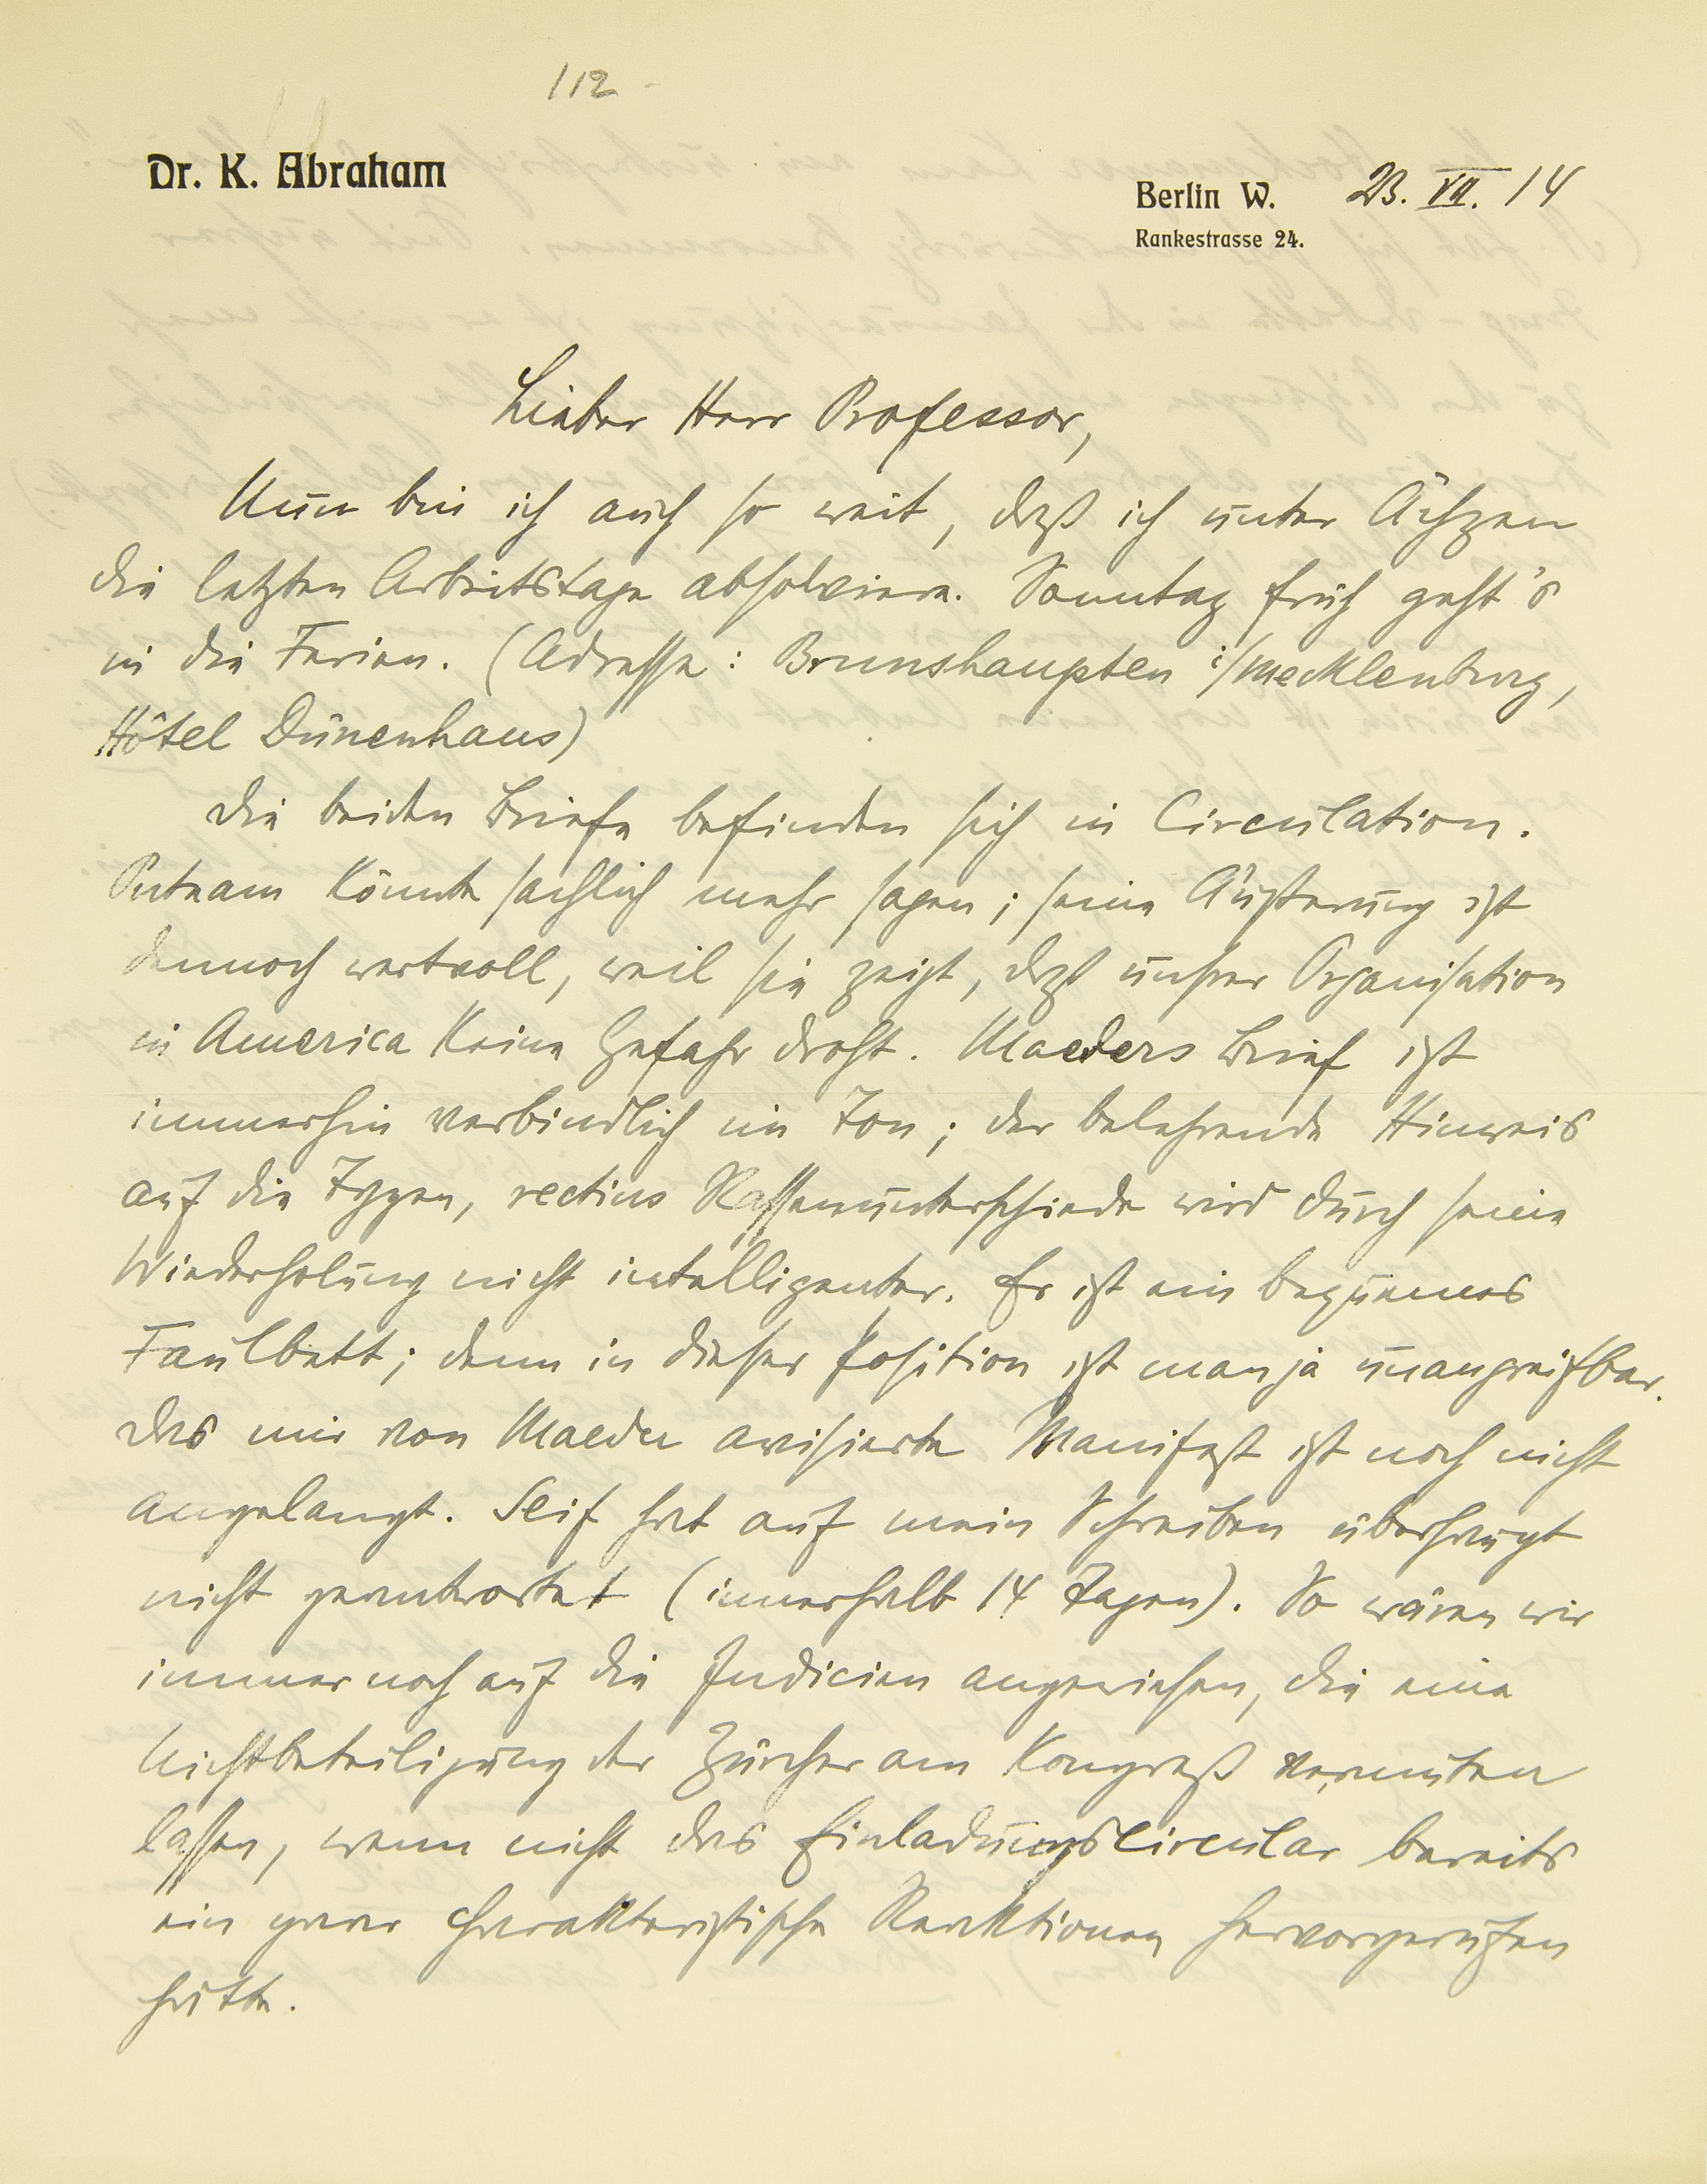 112
Dr. K. Abraham
Berlin W. 23. VII. 14
Rankestrasse 24.
Lieber Herr Professor,
Nun bin ich auch so weit, daß ich unter Ächzen
die letzten Arbeitstage absolviere. Sonntag früh geht's
in die Ferien. (Adresse: Brunshaupten i/Mecklenburg,
Hôtel Dünenhaus)
Die beiden Briefe befinden sich in Circulation.
Putnam könnte sachlich mehr sagen; seine Äußerung ist
dennoch wertvoll, weil sie zeigt, daß unsrer Organisation
in America keine Gefahr droht. Maeders Brief ist
immerhin verbindlich im Ton; der belehrende Hinweis
auf die Typen, rectius Rassenunterschiede wird durch seine
Wiederholung nicht intelligenter. Er ist ein bequemes
Faulbett; denn in dieser Position ist man ja unangreifbar.
Das mir von Maeder avisierte Manifest ist noch nicht
angelangt. Seif hat auf mein Schreiben überhaupt
nicht geantwortet (innerhalb 14 Tagen). So wären wir
immer noch auf die Indicien angewiesen, die eine
Nichtbeteiligung der Zürcher am Kongreß vermuten
lassen, wenn nicht das Einladungscircular bereits
ein paar charakteristische Reaktionen hervorgerufen
hätte.